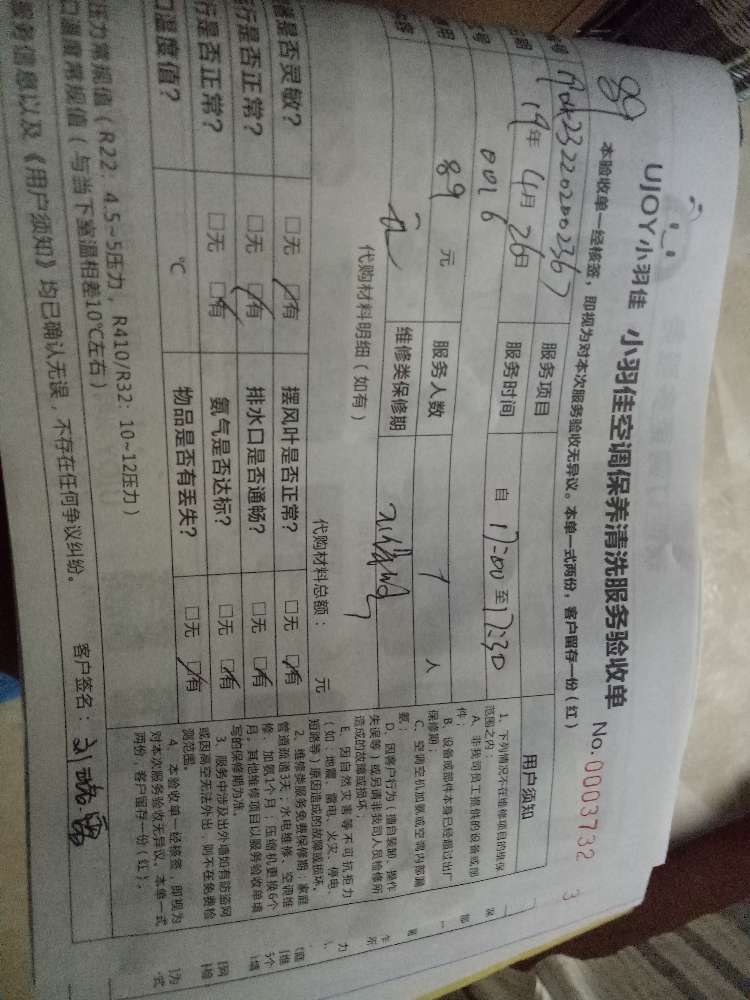 89
UJOY小羽佳 小羽佳空调保养清洗服务验收单 No.00003732
3
本验收单一经核签，即视为对本次服务验收无异议。本单一式两份，客户留存一份（红）
号 服务项目
19年4月26日 服务时间 自 17:00 至 17:30
号 0016
89 元 服务人数 1 人
维修类保修期
代购材料明细（如有） 代购材料总额： 元
是否灵敏？ □无 ☑有 摆风叶是否正常？ □无 ☑有
行是否正常？ □无 ☑有 排水口是否通畅？ □无 ☑有
行是否正常？ □无 ☑有 氨气是否达标？ □无 ☑有
口温度值？ ℃ 物品是否有丢失？ □无 ☑有
压力常规值（R22：4.5~5压力，R410/R32：10~12压力）
口温度常规值（与当下室温相差10℃左右）
服务信息以及《用户须知》均已确认无误，不存在任何争议纠纷。 客户签名：
用户须知
1、下列情况不在维修项目的维保
范围之内：
A、非我司员工提供的设备或部
件；
B、设备或部件本身已经超过出厂
保修期；
C、空调空机加氨或空调内部漏
氨；
D、因客户行为（擅自装卸、操作
失误等）或另请非我司人员检修所
造成的故障或损坏；
E、因自然灾害等不可抗拒力
（如：地震、雷电、火灾、停电、
短路等）原因造成的故障或损坏。
2、维修类服务免费保修期：家庭
管道疏通3天；水电维修、空调维
修、加氨1个月；压缩机更换6个
月。其他维修项目以服务验收单填
写的保修期为准。
3、服务中涉及出外墙如有防盗网
或因悬空无法外出，则不在免费检
测范围。
4、本验收单一经核签，即视为
对本次服务验收无异议，本单一式
两份，客户留存一份（红）。